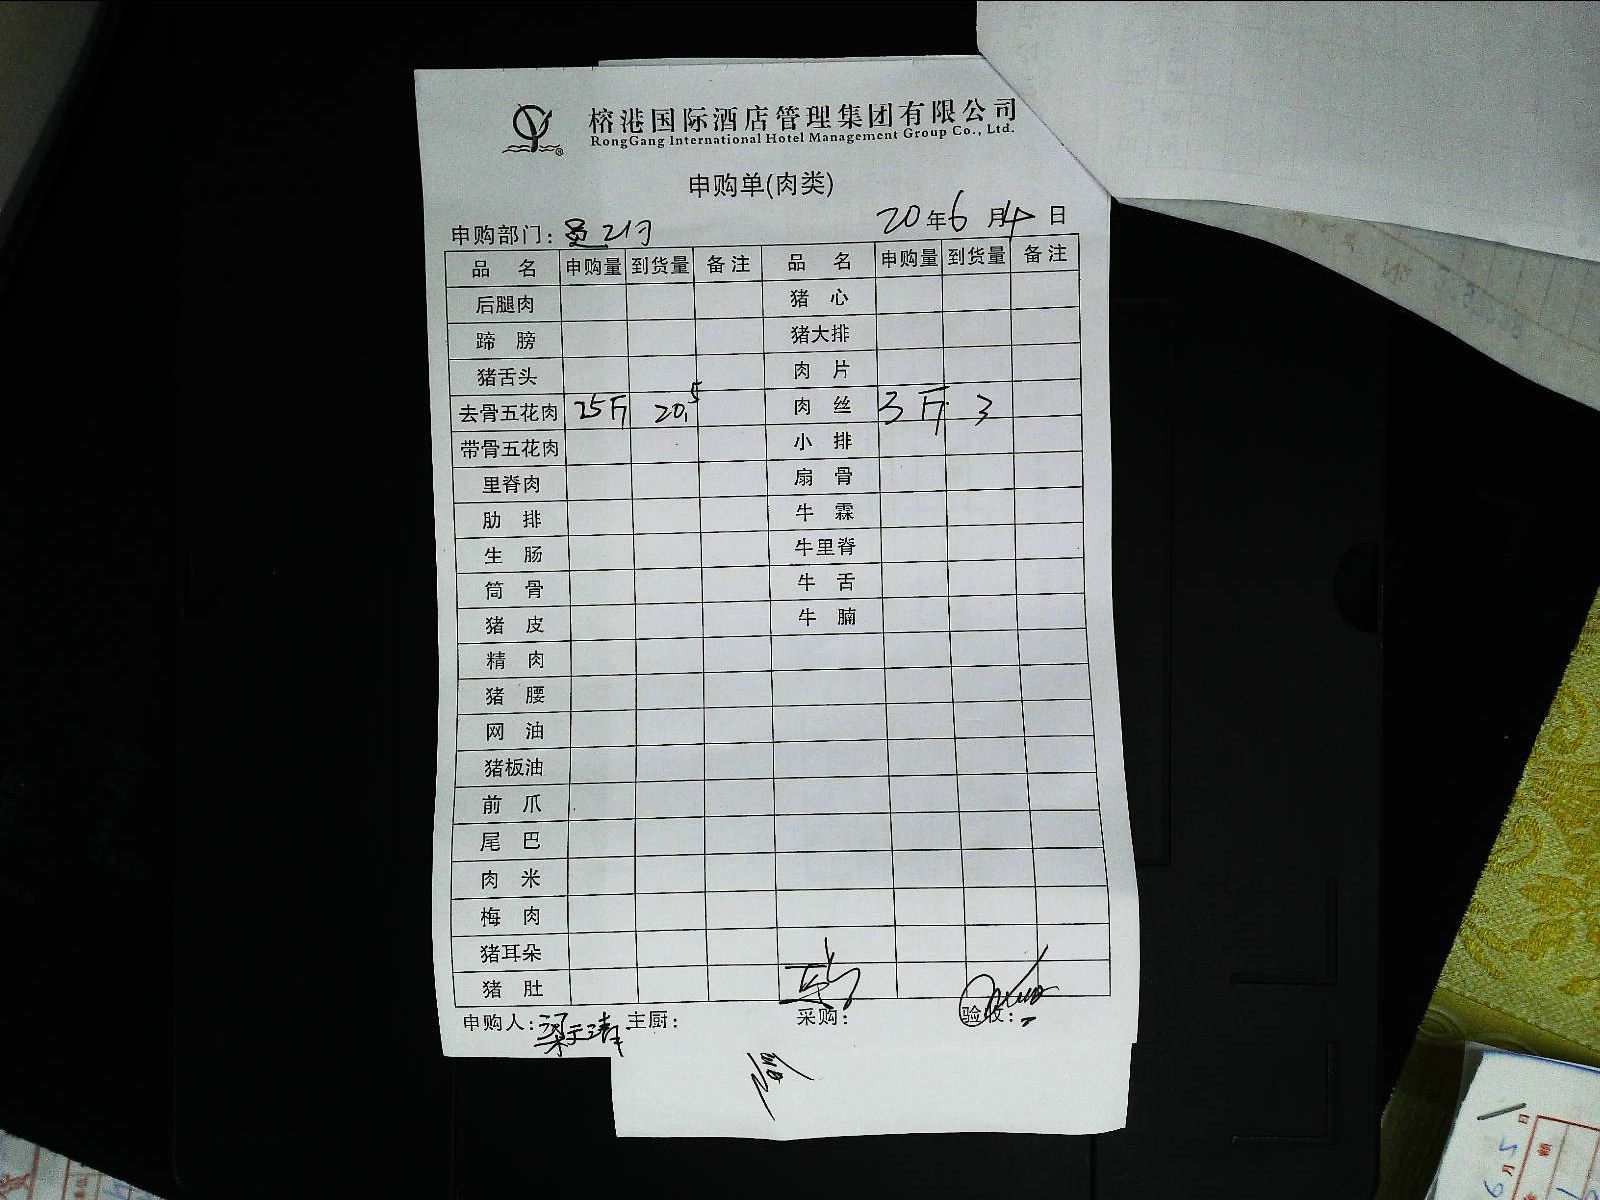 榕港国际酒店管理集团有限公司
RongGang International Hotel Management Group Co., Ltd.
申购单(肉类)
申购部门:
20年6月4日
品 名 申购量 到货量 备注 品 名 申购量 到货量 备注
后腿肉 猪 心
蹄 膀 猪大排
猪舌头 肉 片
去骨五花肉 25斤 20.5 肉 丝 3斤 3
带骨五花肉 小 排
里脊肉 扇 骨
肋 排 牛 霖
生 肠 牛里脊
筒 骨 牛 舌
猪 皮 牛 腩
精 肉
猪 腰
网 油
猪板油
前 爪
尾 巴
肉 米
梅 肉
猪耳朵
猪 肚
申购人: 主厨: 采购: 验收: